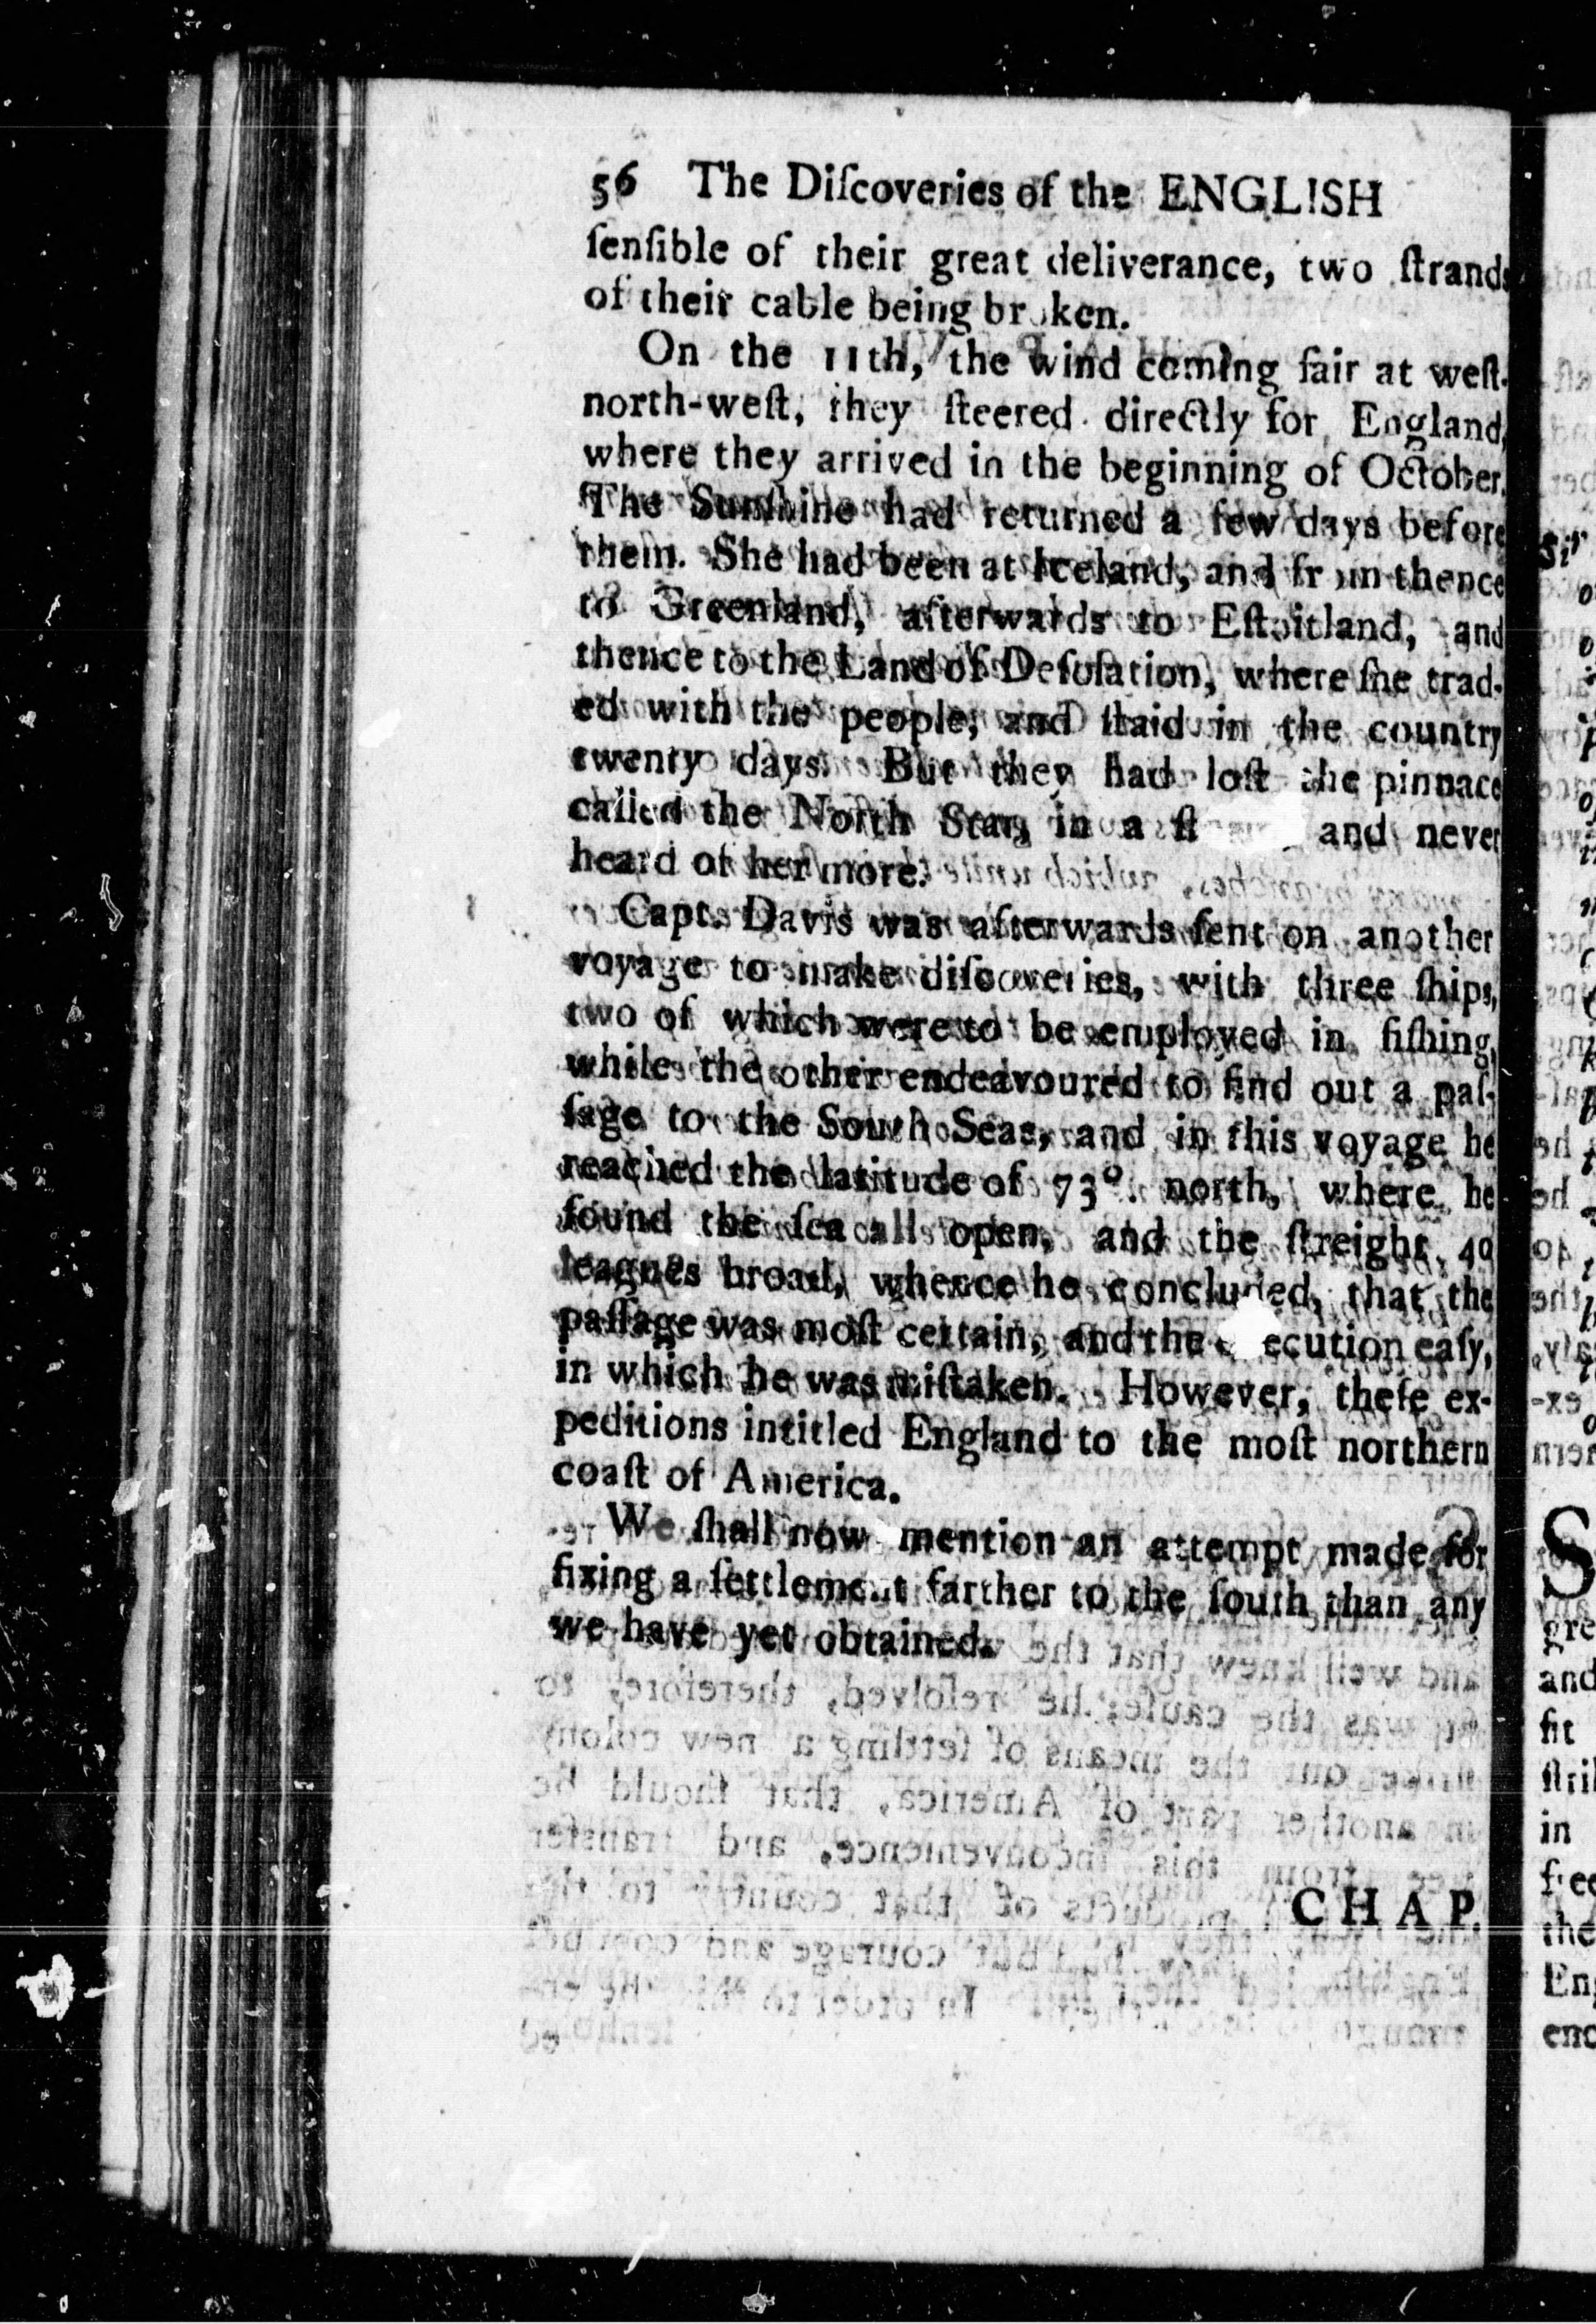 56 The Diſcoveries of the ENGLISH
ſenſible of their great deliverance, two ſtrands
of their cable being broken.
On the 11th, the wind coming fair at weſt-
north-weſt, they ſteered directly for England,
where they arrived in the beginning of October.
The Sunſhine had returned a few days before
them. She had been at Iceland, and from thence
to Greenland, afterwards to Eſtoitland, and
thence to the Land of Deſolation, where ſhe trad-
ed with the people, and ſtaid in the country
twenty days. But they had loſt the pinnace
called the North Star, in a and never
heard of her more.
Capt. Davis was afterwards ſent on another
voyage to make diſcoveries, with three ſhips,
two of which were to be employed in fiſhing,
while the other endeavoured to find out a paſ-
ſage to the South Seas, and in this voyage he
reached the latitude of 73°. north, where he
found the ſea all open, and the ſtreight 40
leagues broad, whence he concluded, that the
paſſage was moſt certain, and the execution eaſy,
in which he was miſtaken. However, theſe ex-
peditions intitled England to the moſt northern
coaſt of America.
We ſhall now mention an attempt made for
fixing a ſettlement farther to the ſouth than any
we have yet obtained.
CHAP.